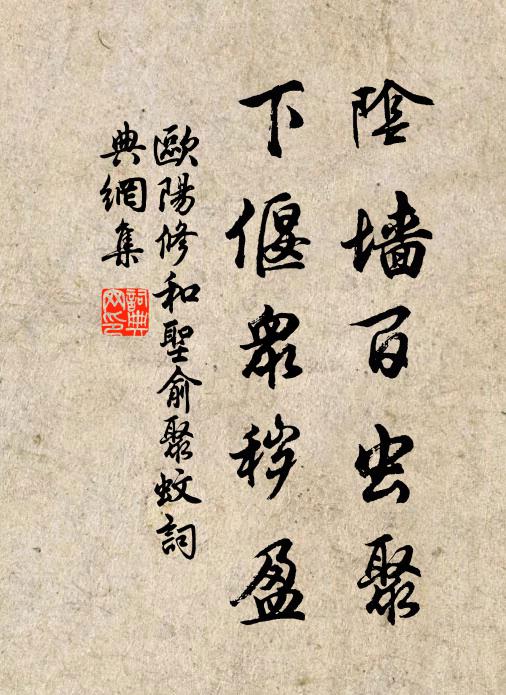 陰墙百虫聚
下偃衆秽盈
歐陽修和聖俞聚蚊詞
典網集
詞典網印